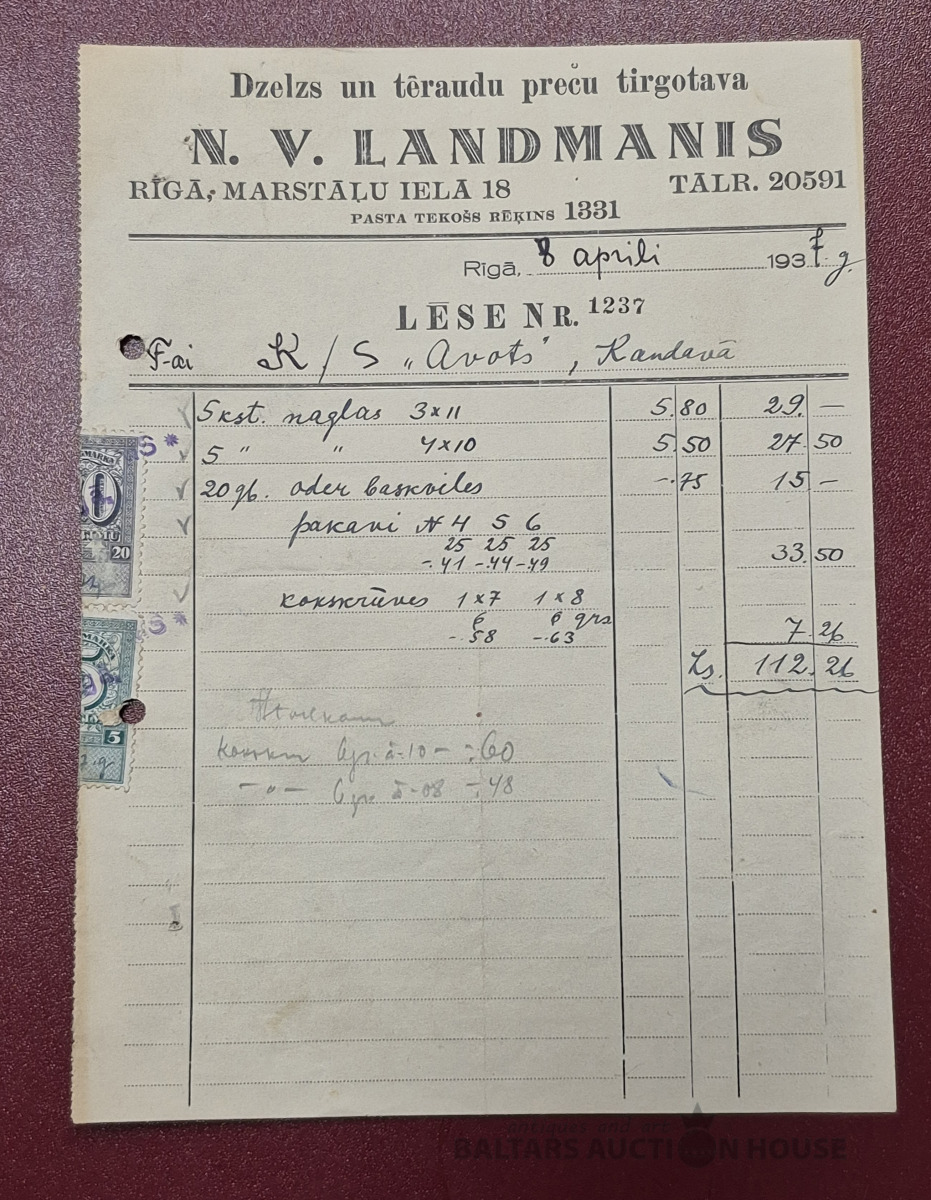 Dzelzs un tēraudu preču tirgotava
N. V. LANDMANIS
RĪGĀ, MARSTAĻU IELĀ 18 TĀLR. 20591
PASTA TEKOŠS RĒĶINS 1331
Rīgā, 8 aprili 1937. g.
LĒSE NR. 1237
F-ai K/S „Avots", Kandavā
5 kst. naglas 3x11 5.80 29.—
5 " " 4x10 5.50 27.50
20 gb. oder baskviles -.75 15.—
pakavi N 4 5 6
25 25 25
-.41 -.44 -.49 33.50
kokskrūves 1x7 1x8
6 6 grs
-.58 -.63 7.26
Ls. 112.26
6 gr. à -.10 — -.60
— " — 6 gr. à -.08 -.48
20
5
antiques and art
BALTARS AUCTION HOUSE